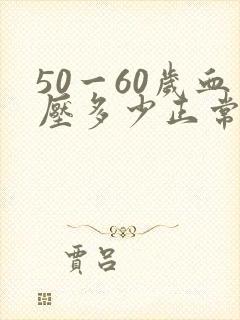 50一60歲血
壓多少正常
賈呂